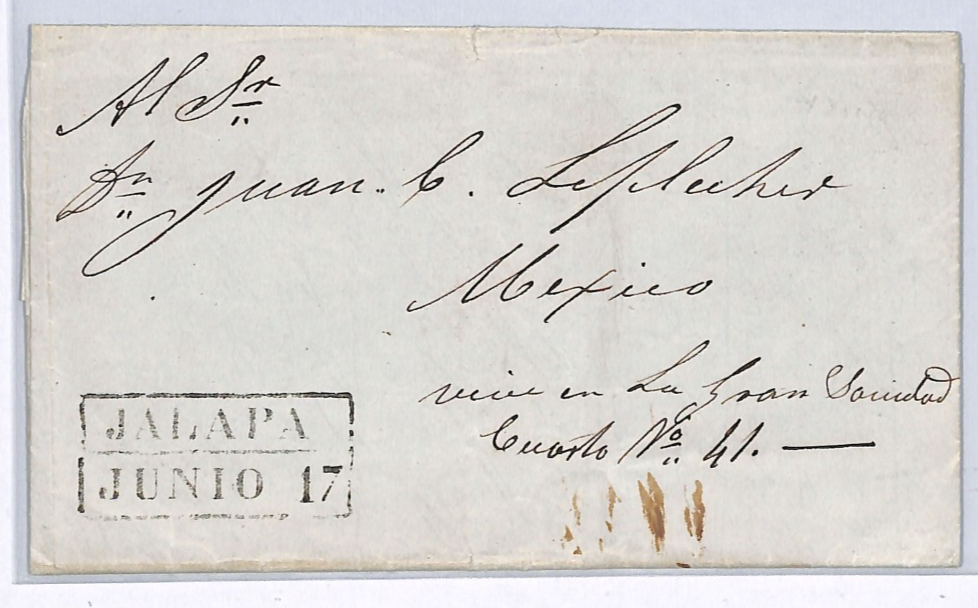 Al Sr
Dn Juan. C. Leplecher
Mexico
vive en La Gran Sociedad
Cuarto No 41.
JALAPA
JUNIO 17